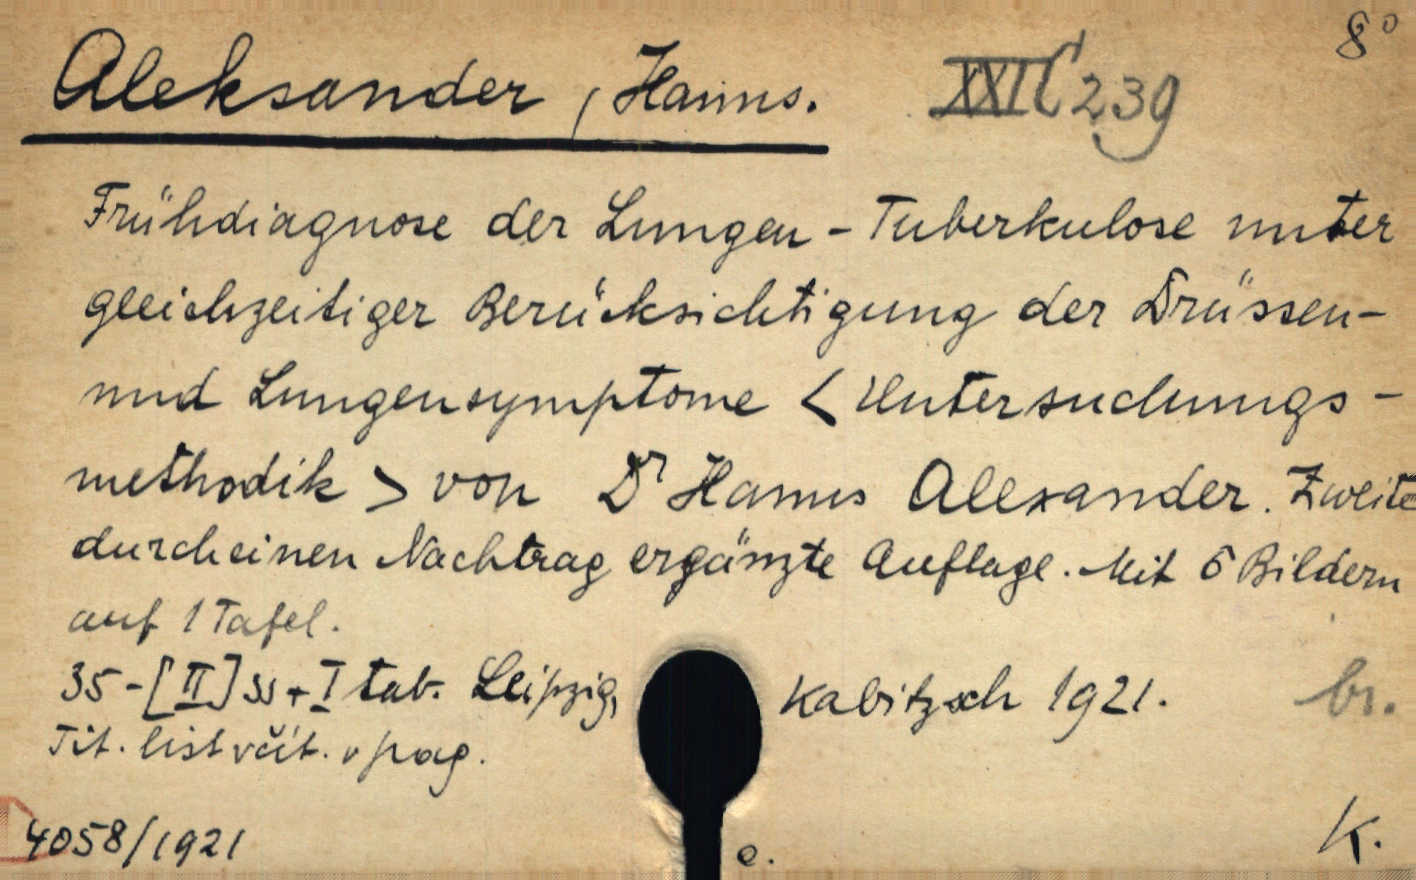 8°
Aleksander, Hanns. XXII C 239
Frühdiagnose der Lungen-Tuberkulose unter
gleichzeitiger Berücksichtigung der Drüssen-
und Lungensymptome <Untersuchungs-
methodik> von Dr Hanns Alexander. Zweite
durch einen Nachtrag ergänzte Auflage. Mit 5 Bildern
auf 1 Tafel.
35-[II] ss + I tab. Leipzig, Kabitzsch 1921. br.
Tit. list včít. v pag.
4058/1921 e. K.